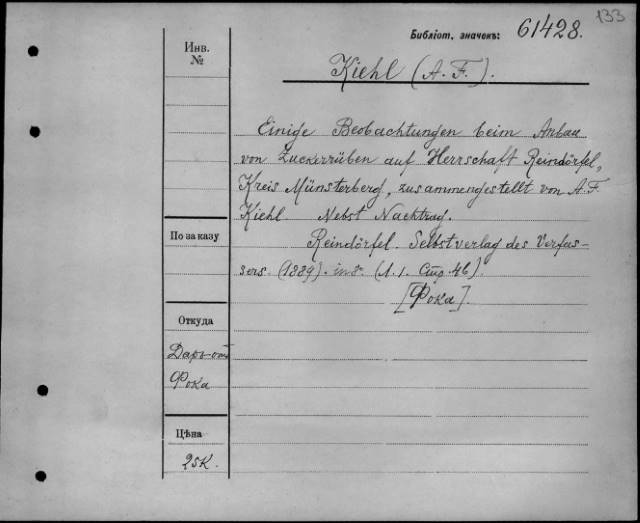 133
Библіот. значекъ: 61428.
Инв. №
Kiehl (A. F.).
Einige Beobachtungen beim Anbau
von Zuckerrüben auf Herrschaft Reindörfel,
Kreis Münsterberg, zusammengestellt von A. F.
Kiehl. Nebst Nachtrag.
По заказу
Reindörfel. Selbstverlag des Verfas-
sers. (1889). in 8°. (1. 1. Стр. 46).
[Фока].
Откуда
Даръ отъ
Фока
Цѣна
25к.